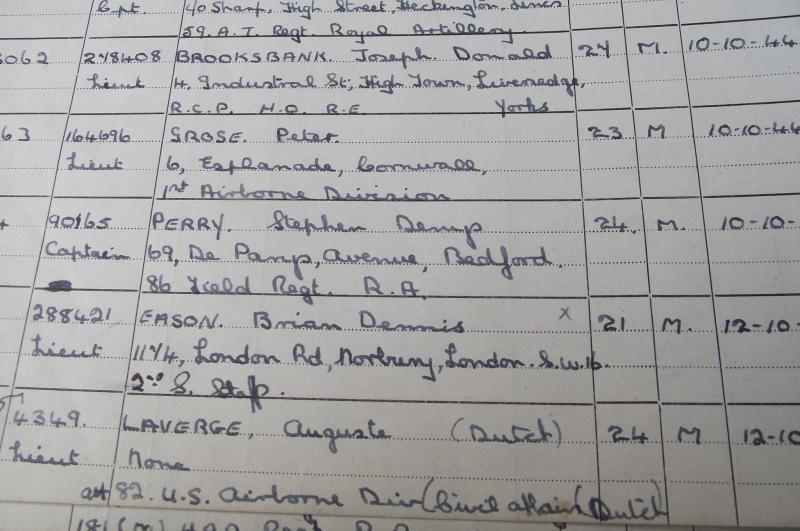 Capt. 40 Sharp, High Street, Heckington, Lincs
59. A.T. Regt. Royal Artillery.
3062 278408 BROOKSBANK. Joseph. Donald 27 M. 10-10-44
Lieut 4, Industral St, High Town, Liversedge,
R.C.P. H.Q. R.E. Yorks
63 164696 GROSE. Peter. 23 M 10-10-44
Lieut 6, Esplanade, Cornwall,
1st Airborne Division
90165 PERRY. Stephen Demp 24. M. 10-10-
Captain 69, De Parys, Avenue, Bedford.
86 Field Regt. R.A.
288421 EASON. Brian Dennis x 21 M. 12-10-
Lieut 1174, London Rd, Norbury, London. S.W.16.
2nd S. Staf.
4349. LAVERGE, Auguste (Dutch) 24 M 12-10
Lieut None
att 82. U.S. Airborne Div (Civil affairs) Dutch